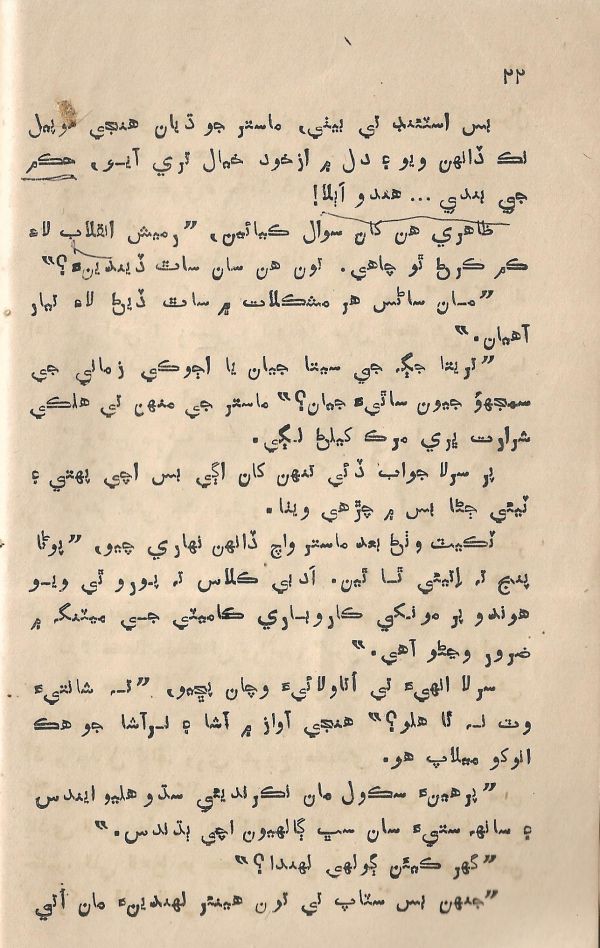 ٢٢
بس اسٽئنڊ تي بيٺي، ماستر جو ڌيان هنجي موڀيل
نڪ ڏانهن ويو ۽ دل ۾ ازخود خيال تري آيـو، حڪم
جي بندي ... هندو آبلا!
ظاهري هن کان سوال ڪيائين، ”رميش انقلاب لاءِ
ڪم ڪرڻ ٿو چاهي. تون هن سان ساٿ ڏيندينءَ؟“
”مـان ساڻس هر مشڪلات ۾ ساٿ ڏيڻ لاءِ تيار
آهيان.“
”تريتا جڳ جي سيتا جيان يا اڄوڪي زماني جي
سمجهوُ جيون ساٿيءَ جيان؟“ ماستر جي منهن تي هلڪي
شرارت ڀري مرڪ کيلڻ لـڳي.
پر سرلا جواب ڏئي تنهن کان اڳي بس اچي پهتي ۽
ٽيئي ڄڻا بس ۾ چڙهي ويٺا.
ٽڪيٽ وٺڻ بعد ماستر واچ ڏانهن نهاري چيو، ”پوڻا
پنج ته اِتيئي ٿـا ٿين. اَدبي ڪلاس ته پـورو ٿي ويـو
هوندو پر مونکي ڪاروبـاري ڪاميٽي جـي ميٽنگ ۾
ضرور وڃڻو آهي.“
سرلا انهيءَ تي اُتاولائيءَ وچان پڇيو، ”تـه شانتيءَ
وٽ نـه ٿا هلو؟“ هنجي آواز ۾ آشا ۽ نـرآشا جو هڪ
انوکو ميلاپ هو.
”پرهينءَ سڪول مان نڪرنديئي سڌو هليو ايندس
۽ سانهه ستيءَ سان سڀ ڳالهيون اچي ٻڌندس.“
”گهر ڪيئن ڳولهي لهندا؟“
”جنهن بس سٽاپ تي تون هينئر لهندينءَ مان اُتي